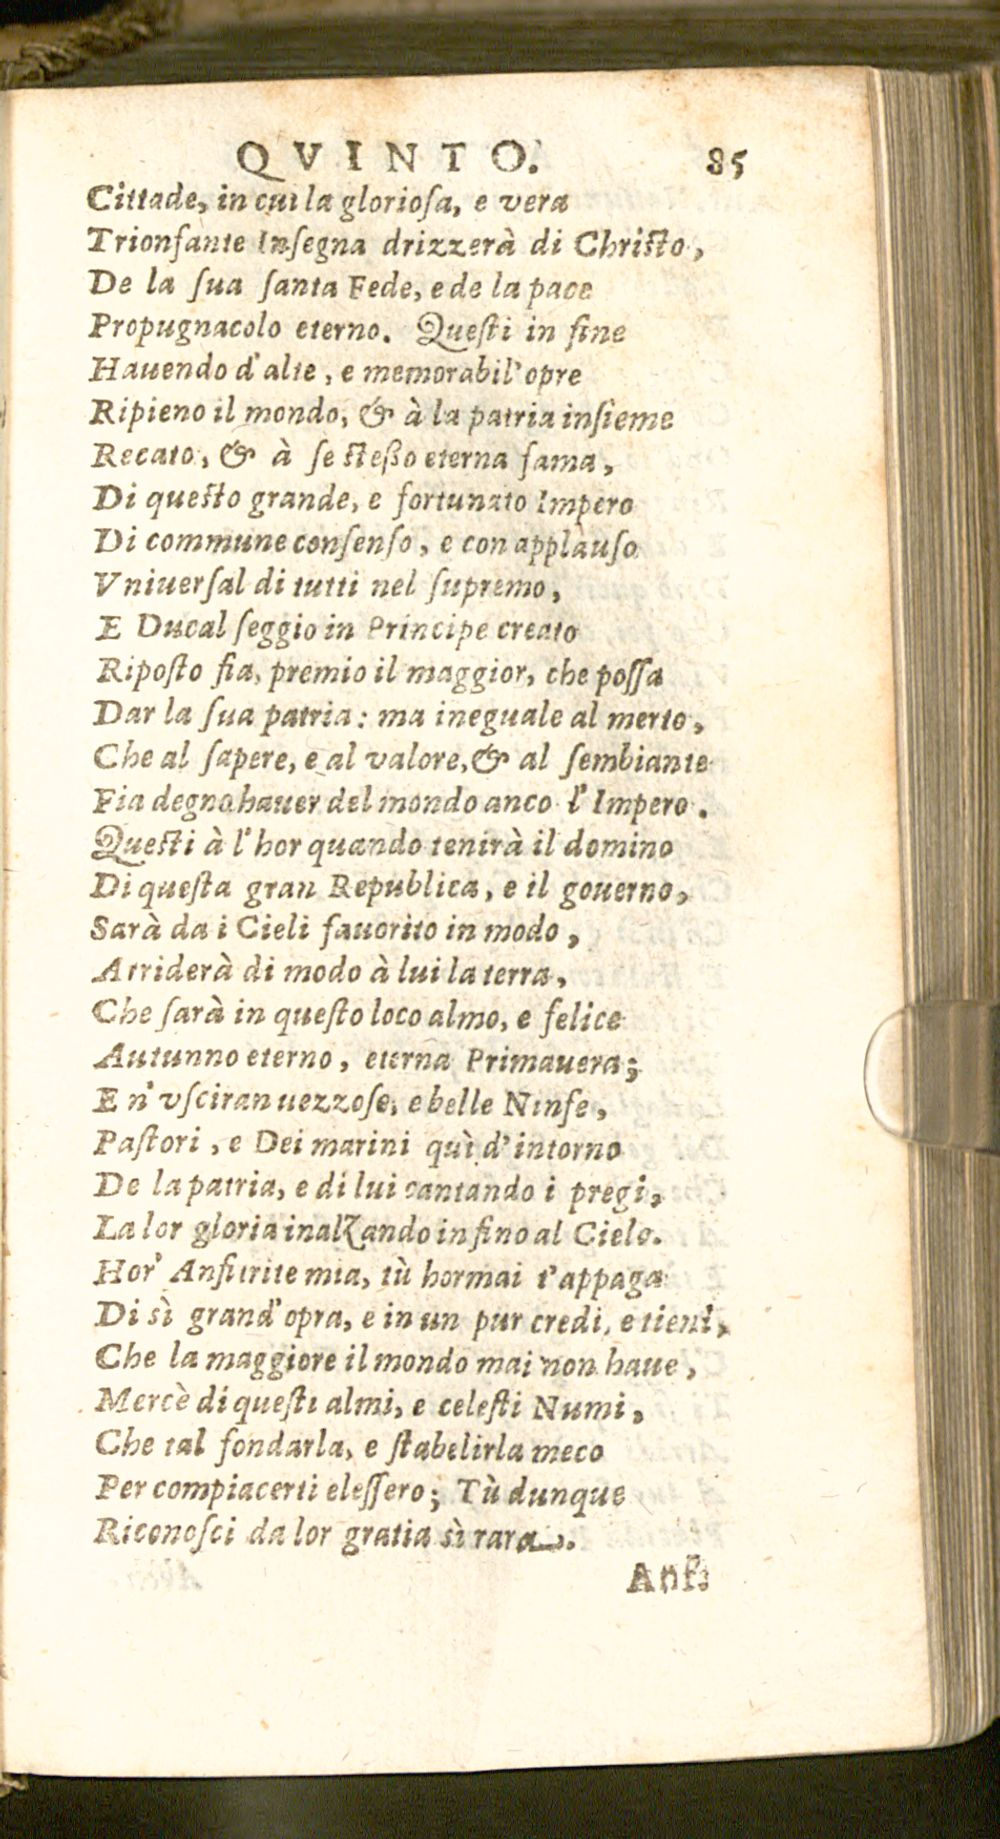 QVINTO. 85
Cittade, in cui la glorioſa, e vera
Trionfante Inſegna drizzerà di Chriſto,
De la ſua ſanta Fede, e de la pace
Propugnacolo eterno. Queſti in fine
Hauendo d'alte, e memorabil'opre
Ripieno il mondo, & à la patria inſieme
Recato, & à ſe ſteßo eterna fama,
Di queſto grande, e fortunato Impero
Di commune conſenſo, e con applauſo
Vniuerſal di tutti nel ſupremo,
E Ducal ſeggio in Principe creato
Ripoſto fia, premio il maggior, che poſſa
Dar la ſua patria: ma ineguale al merto,
Che al ſapere, e al valore, & al ſembiante
Fia degno hauer del mondo anco l'Impero.
Queſti à l'hor quando tenirà il domino
Di queſta gran Republica, e il gouerno,
Sarà da i Cieli fauorito in modo,
Arriderà di modo à lui la terra,
Che ſarà in queſto loco almo, e felice
Autunno eterno, eterna Primauera;
E n'vſciran uezzoſe, e belle Ninfe,
Paſtori, e Dei marini quì d'intorno
De la patria, e di lui cantando i pregi,
La lor gloria inalzando infino al Cielo.
Hor' Anfitrite mia, tù hormai t'appaga
Di sì grand'opra, e in un pur credi, e tieni,
Che la maggiore il mondo mai non haue,
Mercè di queſti almi, e celeſti Numi,
Che tal fondarla, e ſtabilirla meco
Per compiacerti eleſſero; Tù dunque
Riconoſci da lor gratia sì rara.
Anf.